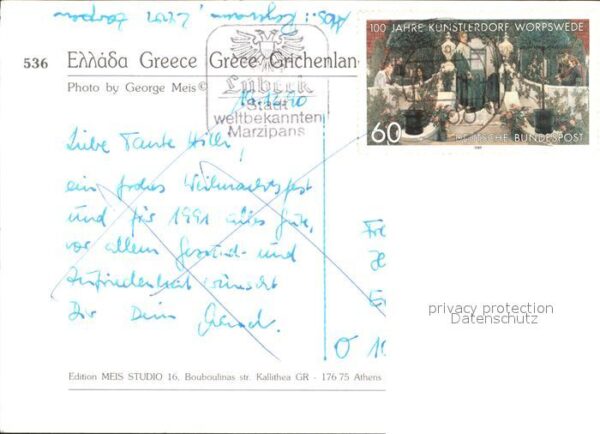 536 Ελλάδα Greece Grèce Grichenlan
Photo by George Meis ©
Lübeck
Stadt
weltbekannten
Marzipans
100 JAHRE KÜNSTLERDORF WORPSWEDE
60 DEUTSCHE BUNDESPOST
1989
Abs.:
19.12.90
Liebe Tante Hilli,
ein frohes Weihnachtsfest
und für 1991 alles Gute,
vor allem Gesund- und
Zufriedenheit wünscht
Dir Dein Gerard.
Fr
O 1
privacy protection
Datenschutz
Edition MEIS STUDIO 16, Bouboulinas str. Kallithea GR - 176 75 Athens